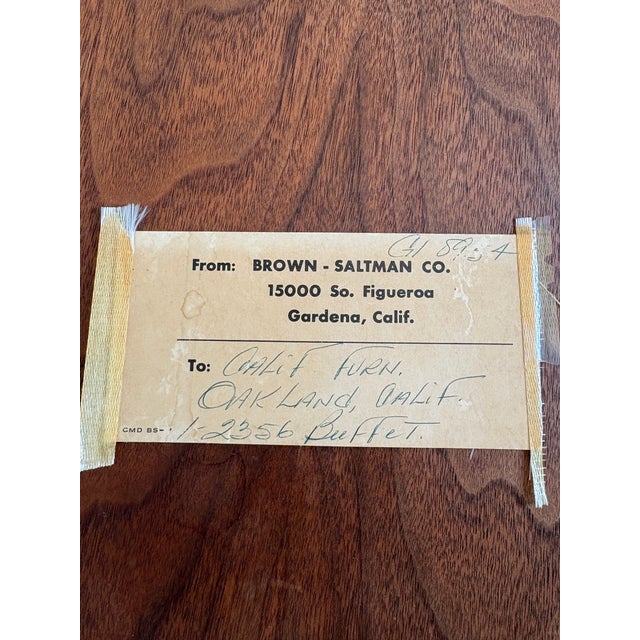 From: BROWN - SALTMAN CO.
15000 So. Figueroa
Gardena, Calif.
To: CALIF FURN.
OAKLAND, CALIF.
1-2356 BUFFET.
CMD BS-